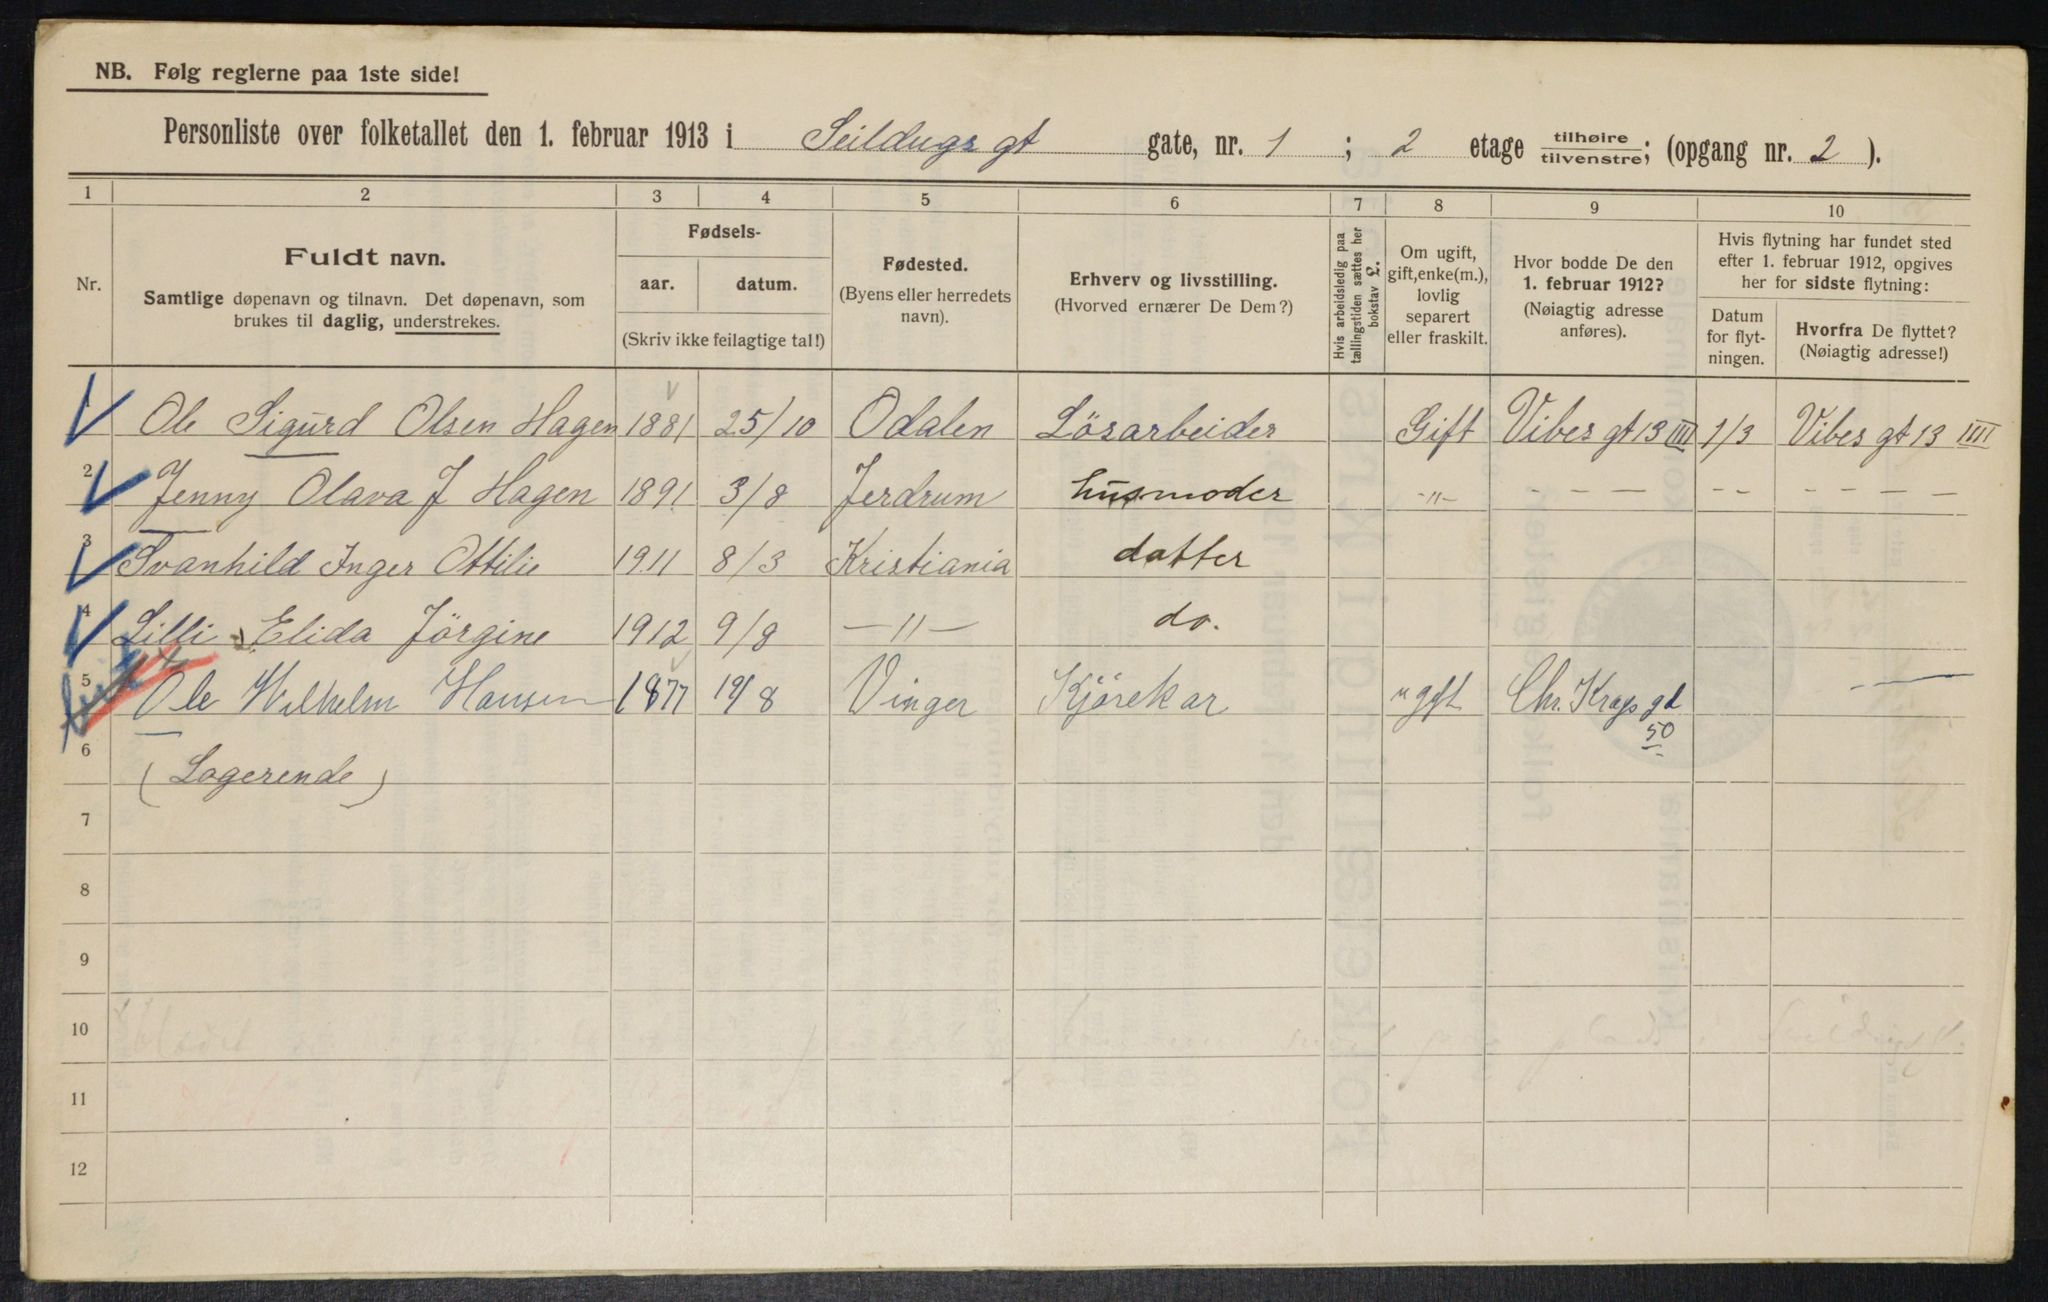 NB. Følg reglerne paa 1ste side!
Personliste over folketallet den 1. februar 1913 i Seildugs gt gate, nr. 1 ; 2 etage tilhøire/tilvenstre; (opgang nr. 2 ).
1 2 3 4 5 6 7 8 9 10
Nr.
Fuldt navn.
Samtlige døpenavn og tilnavn. Det døpenavn, som
brukes til daglig, understrekes.
Fødsels-
aar. datum.
(Skriv ikke feilagtige tal!)
Fødested.
(Byens eller herredets
navn).
Erhverv og livsstilling.
(Hvorved ernærer De Dem?)
Hvis arbeidsledig paa
tællingstiden sættes her
bokstav L.
Om ugift,
gift, enke(m.),
lovlig
separert
eller fraskilt.
Hvor bodde De den
1. februar 1912?
(Nøiagtig adresse
anføres).
Hvis flytning har fundet sted
efter 1. februar 1912, opgives
her for sidste flytning:
Datum
for flyt-
ningen.
Hvorfra De flyttet?
(Nøiagtig adresse!)
1 Ole Sigurd Olsen Hagen 1881 25/10 Odalen Lösarbeider Gift Vibes gt 13 III 1/3 Vibes gt 13 IIII
2 Jenny Olava J Hagen 1891 3/8 Jerdrum husmoder -"- - - - - - - - - - -
3 Svanhild Inger Ottilie 1911 8/3 Kristiania datter
4 Lilli Elida Jörgine 1912 9/8 -"- do.
5 Ole Wilhelm Hansen 1877 19/8 Vinger Kjörekar ugift Chr. Krags gt
50
6 (Logerende)
7
8
9
10
11
12